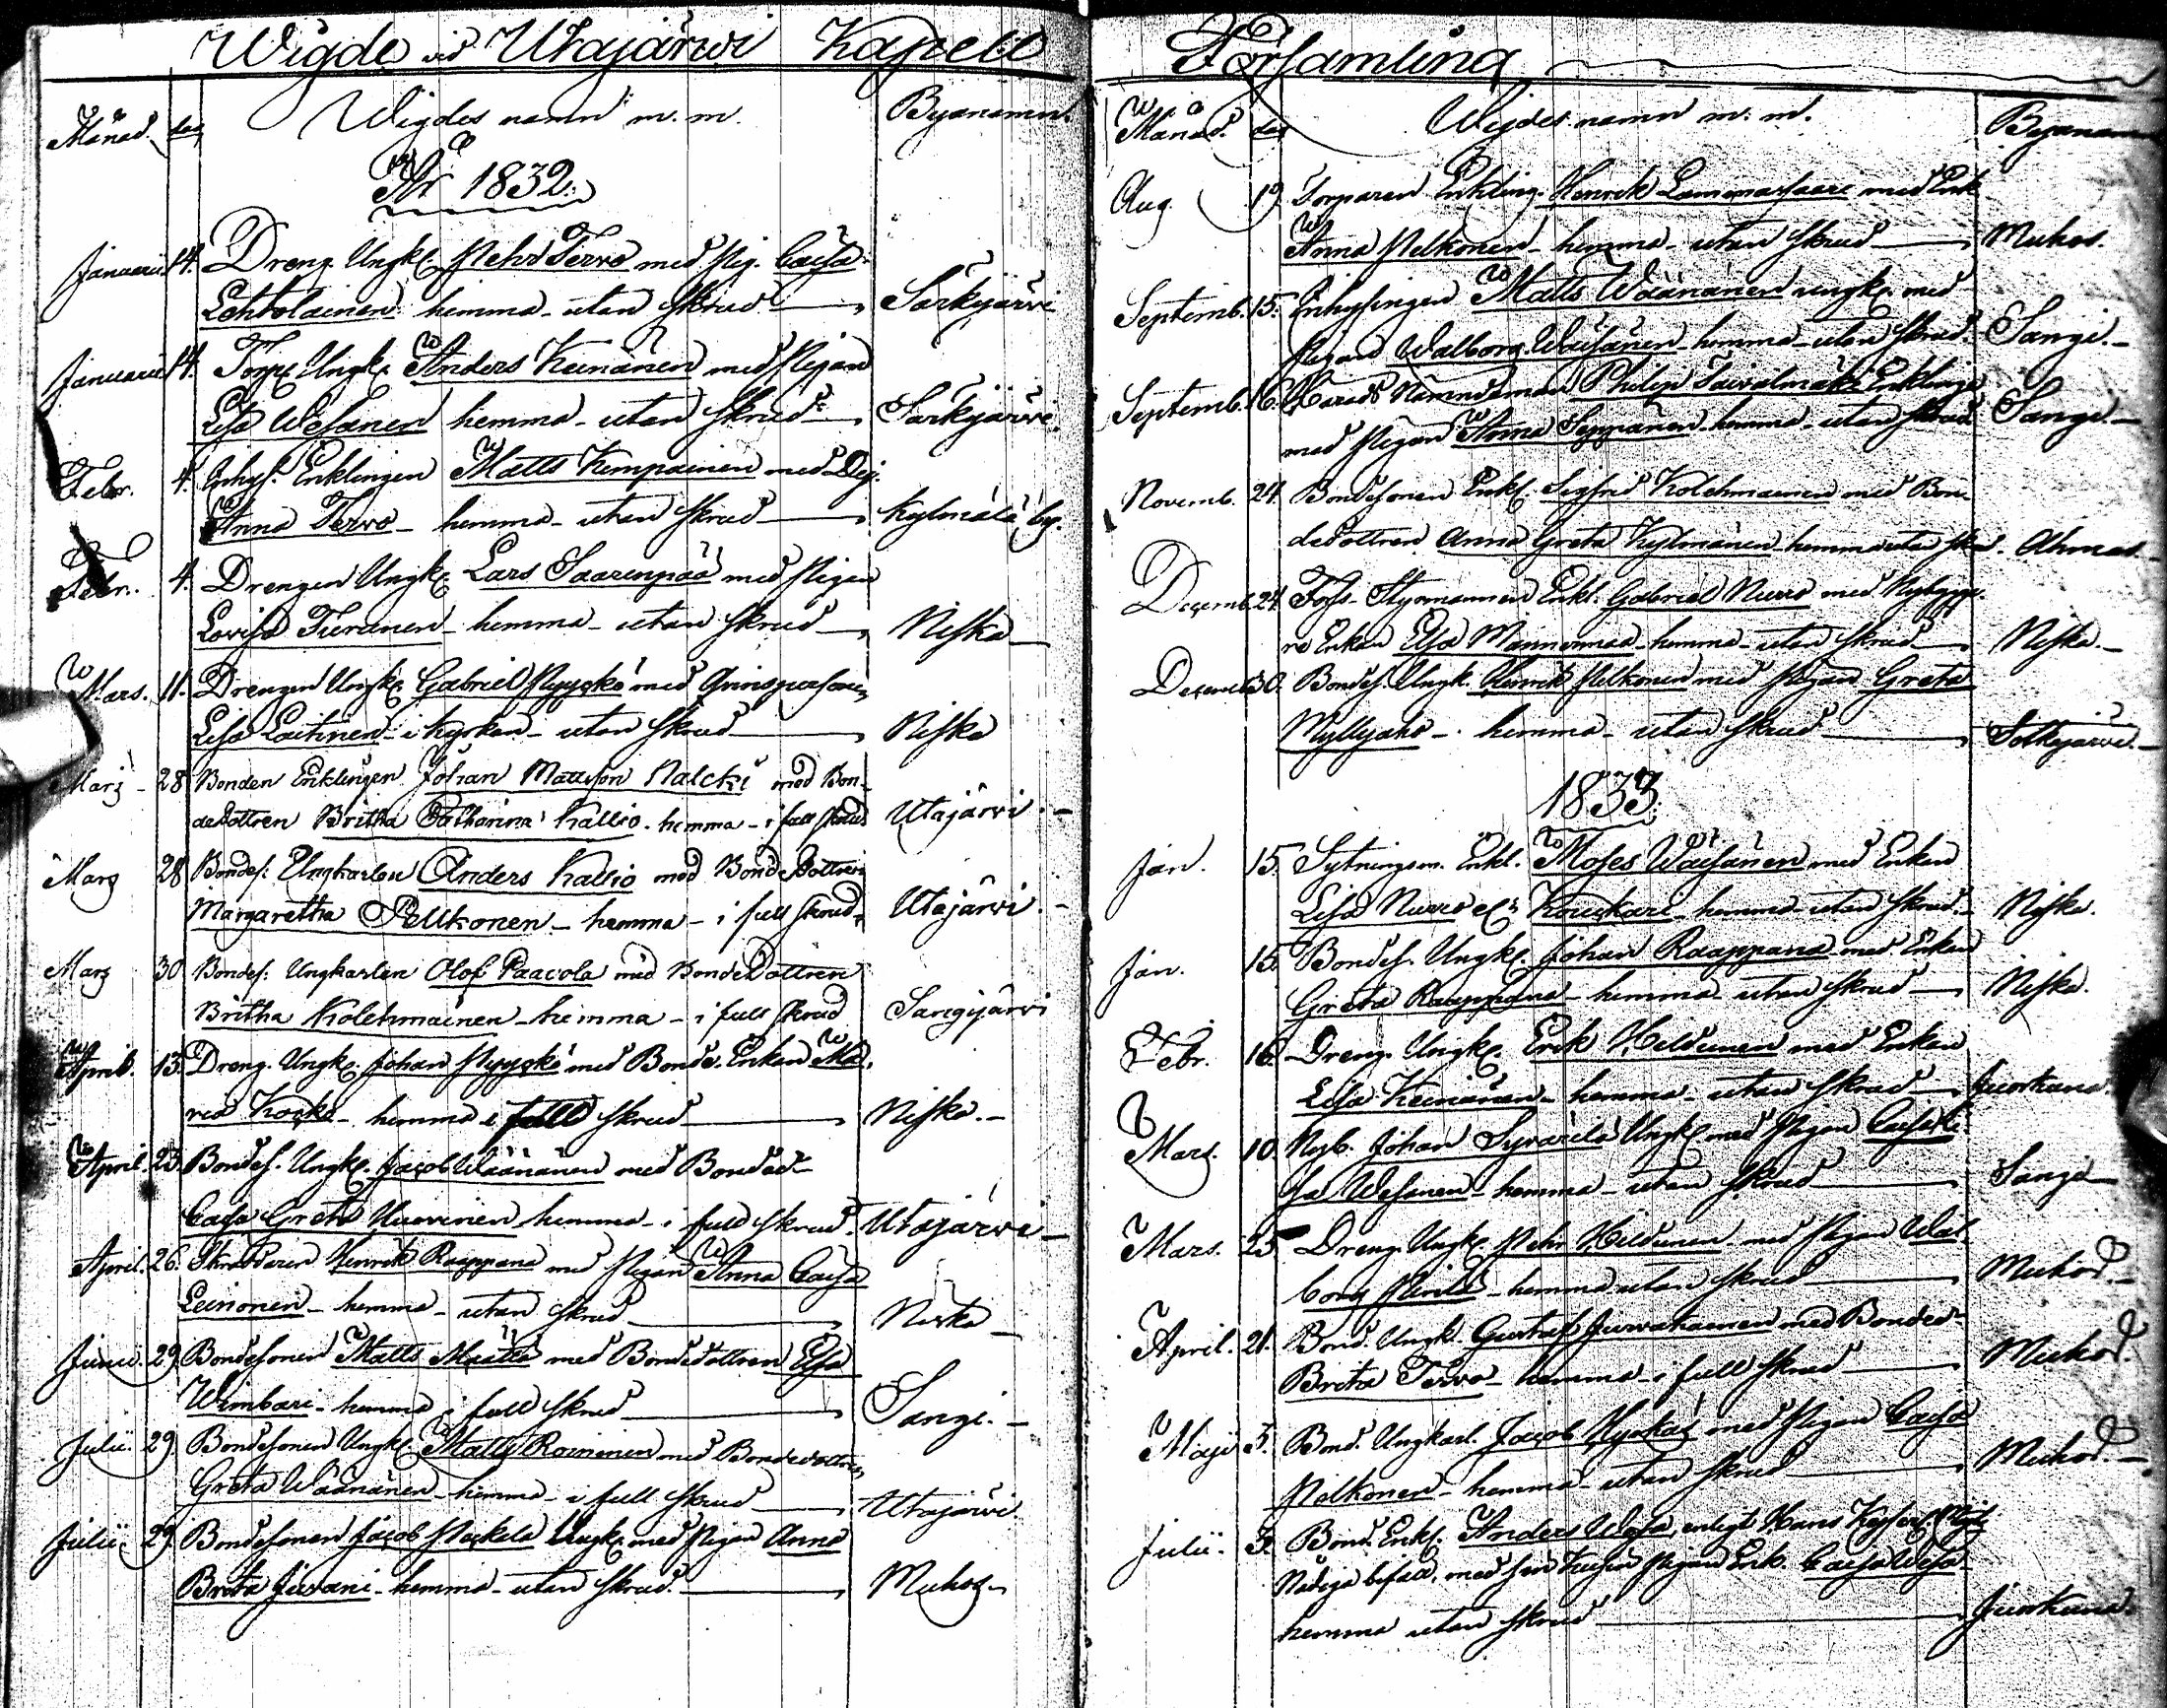 Wigde vid Utajärwi Kapell
Månad. dag Wigdes namn m. m. Byanamn.
År 1832.
Januarii 14. Dreng. Ungk. Pehr Terwo med Pig. Caisa
Lehtolainen hemma utan skrud Särkijärvi
Januarii 14. Torp. Ungk. Anders Keinänen med Pigan
Lisa Wesanen hemma - utan skrud Särkijärvi.
Febr. 4. Inhys. Enklingen Matts Kempainen med Pig.
Anna Terwo - hemma - utan skrud Kylmälä by.
Febr. 4. Drengen Ungk. Lars Saarenpää med Pigan
Lovisa Turunen - hemma - utan skrud Niska
Mars. 11. Drengen Ungk. Gabriel Pyyckö med Qvinspersonen
Lisa Laitinen - i kyrkan - utan skrud Niska
Marz - 28 Bonden Enklingen Johan Mattsson Nalcki med Bon-
dedottren Britha Catharina Kallio - hemma - i full skrud Utajärvi. -
Marz 28 Bondes: Ungkarlen Anders Kallio med BondeDottren
Margaretha Pellkonen - hemma - i full skrud Utajärvi. -
Marz 30 Bondes: Ungkarlen Olof Paavola med BondeDottren
Britha Kolehmainen - hemma - i full skrud Sangijärvi
April. 13. Dreng. Ungk. Johan Pyyckö med Bonde. Enkan Ma-
ria Koski - hemma i full skrud Niska. -
April. 23. Bondes. Ungk. Jacob Wäänänen med Bonded.
Caisa Greta Huovinen hemma - i full skrud. Utajärvi -
April. 26. Skräddaren Henrik Raappana med Pigan Anna Caisa
Leinonen - hemma - utan skrud Niska -
Junii. 29. Bondesonen Matts Määttä med Bondedottren Elsa
Wimbari - hemma i full skrud Sangi. -
Julii. 29. Bondesonen Ungk. Matts Roininen med Bondedottren
Greta Wäänänen - hemma - i full skrud Utajärvi
Julii. 29. Bondesonen Jacob Ungk. med Pigan Anna
Brita Juvani - hemma - utan skrud. Muhos.
Församling
Månad. dag Wigdes namn m. m. Byanamn
Aug. 19. Torparen Enkling. Henrik Lammassaari med Enk.
Anna Pelkonen - hemma - utan skrud Muhos.
Septemb. 15. Inhysingen Matts Wäänänen ungk. med
Pigan Walborg Wäisänen - hemma - utan skrud. Sangi. -
Septemb. 16. Härads Nämndeman Philip Taivalmaki Enkling
med Pigan Anna Seppänen - hemma - utan skrud Sangi. -
Novemb. 24. Bondesonen Enkl. Sigfrid Kolehmainen med Bon-
dedottren Anna Greta Kylmänen hemma utan skrud. Ahmas -
Decemb. 24. Fors-Styrmannen Enkl. Gabriel Nurro med Nybygga-
re Enkan Elsa Mannermaa - hemma - utan skrud Niska. -
Decemb. 30. Bondes. Ungk. Henrik Pelkonen med Pigan Greta
Myllyaho - hemma - utan skrud Sotkajärvi. -
1833.
Jan. 15. Sytningsm. Enkl. Moses Wäisänen med Enkan
Lisa Nurro el. Kouckari - hemma - utan skrud - Niska.
Jan. 15. Bondes. Ungk. Johan Raappana med Enkan
Greta Raappana - hemma - utan skrud Niska.
Febr. 16. Dreng. Ungk. Erik Heldunen med Enkan
Lisa Keinänen - hemma - utan skrud Juorkuna.
Mars. 10. Nyb. Johan Syvärilä Ungk. med Pigan Caisa Li-
sa Wesanen - hemma - utan skrud Sangi
Mars. 25. Dreng. Ungk. Pehr Heldunen med Pigan Wal-
borg - hemma utan skrud Muhos. -
April. 21. Bond. Ungk. Gustaf Jurvakainen med Bonded.
Brita Terwo - hemma - i full skrud Muhos.
Maji 5. Bond. Ungkarl. Jacob Hyrkäs med Pigan Caisa
Pelkonen - hemma - utan skrud Muhos. -
Julii. 3. Bond. Enkl. Anders Wesa, enligt Hans Kejserl. Majts
Nådiga befall. med sin Kusin Pigan Enk. Caisa Wesa
hemma utan skrud Juorkuna.